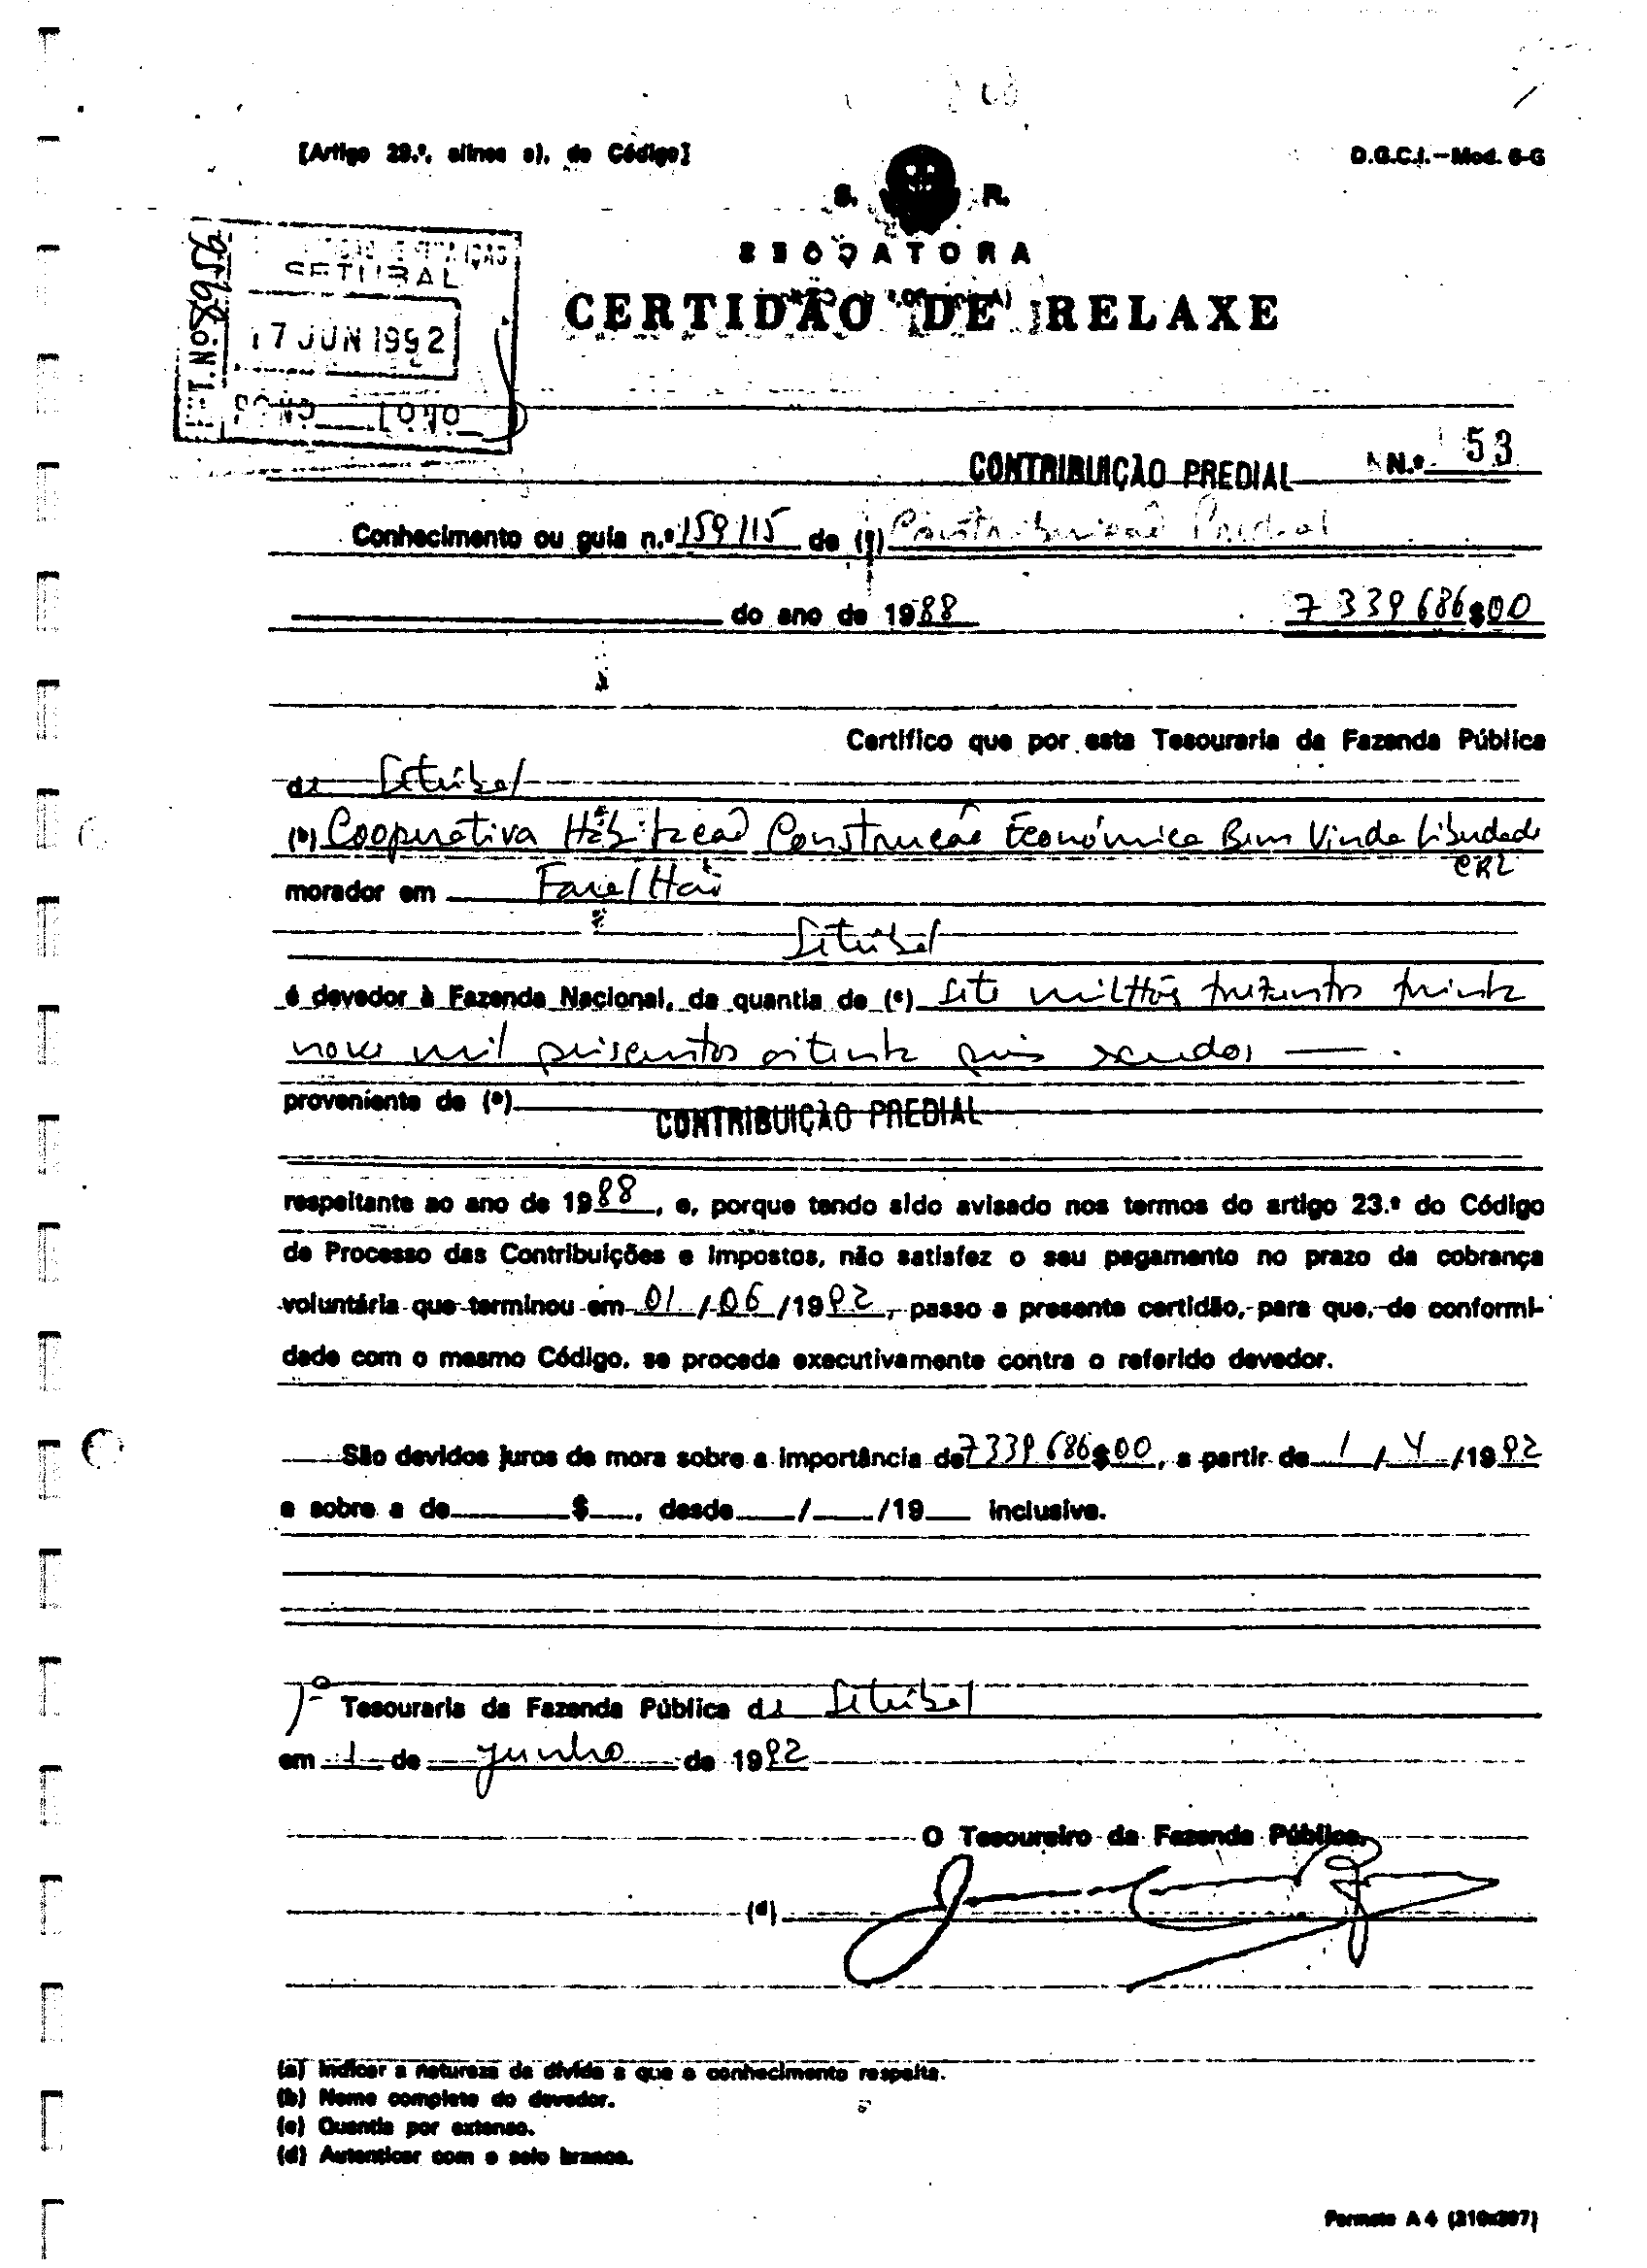 [Artigo 29.º, alínea a), do Código]
D.G.C.I.—Mod. 6-G
S. R.
CERTIDÃO DE RELAXE
SETUBAL
17 JUN 1992
CONTRIBUIÇÃO PREDIAL N.º 53
Conhecimento ou guia n.º 159115 de (a) Contribuição Predial
do ano de 1988 7 339 686$00
Certifico que por esta Tesouraria da Fazenda Pública
de Setúbal
(b) Cooperativa Habitação Construção Económica Bem Vinda Liberdade
CRL
morador em Faralhão
Setúbal
é devedor à Fazenda Nacional, da quantia de (c) sete milhões trezentos trinta
nove mil seiscentos oitenta seis escudos —.
proveniente de (a)
CONTRIBUIÇÃO PREDIAL
respeitante ao ano de 1988, e, porque tendo sido avisado nos termos do artigo 23.º do Código
de Processo das Contribuições e Impostos, não satisfez o seu pagamento no prazo da cobrança
voluntária que terminou em 01/06/1992, passo a presente certidão, para que, de conformi-
dade com o mesmo Código, se proceda executivamente contra o referido devedor.
São devidos juros de mora sobre a importância de 7339 686$00, a partir de 1/4/1992
e sobre a de $ , desde / /19 inclusive.
1ª Tesouraria da Fazenda Pública de Setúbal
em 1 de junho de 1992
O Tesoureiro da Fazenda Pública,
(d)
(a) Indicar a natureza da dívida a que o conhecimento respeita.
(b) Nome completo do devedor.
(c) Quantia por extenso.
(d) Autenticar com o selo branco.
Formato A 4 (210x297)